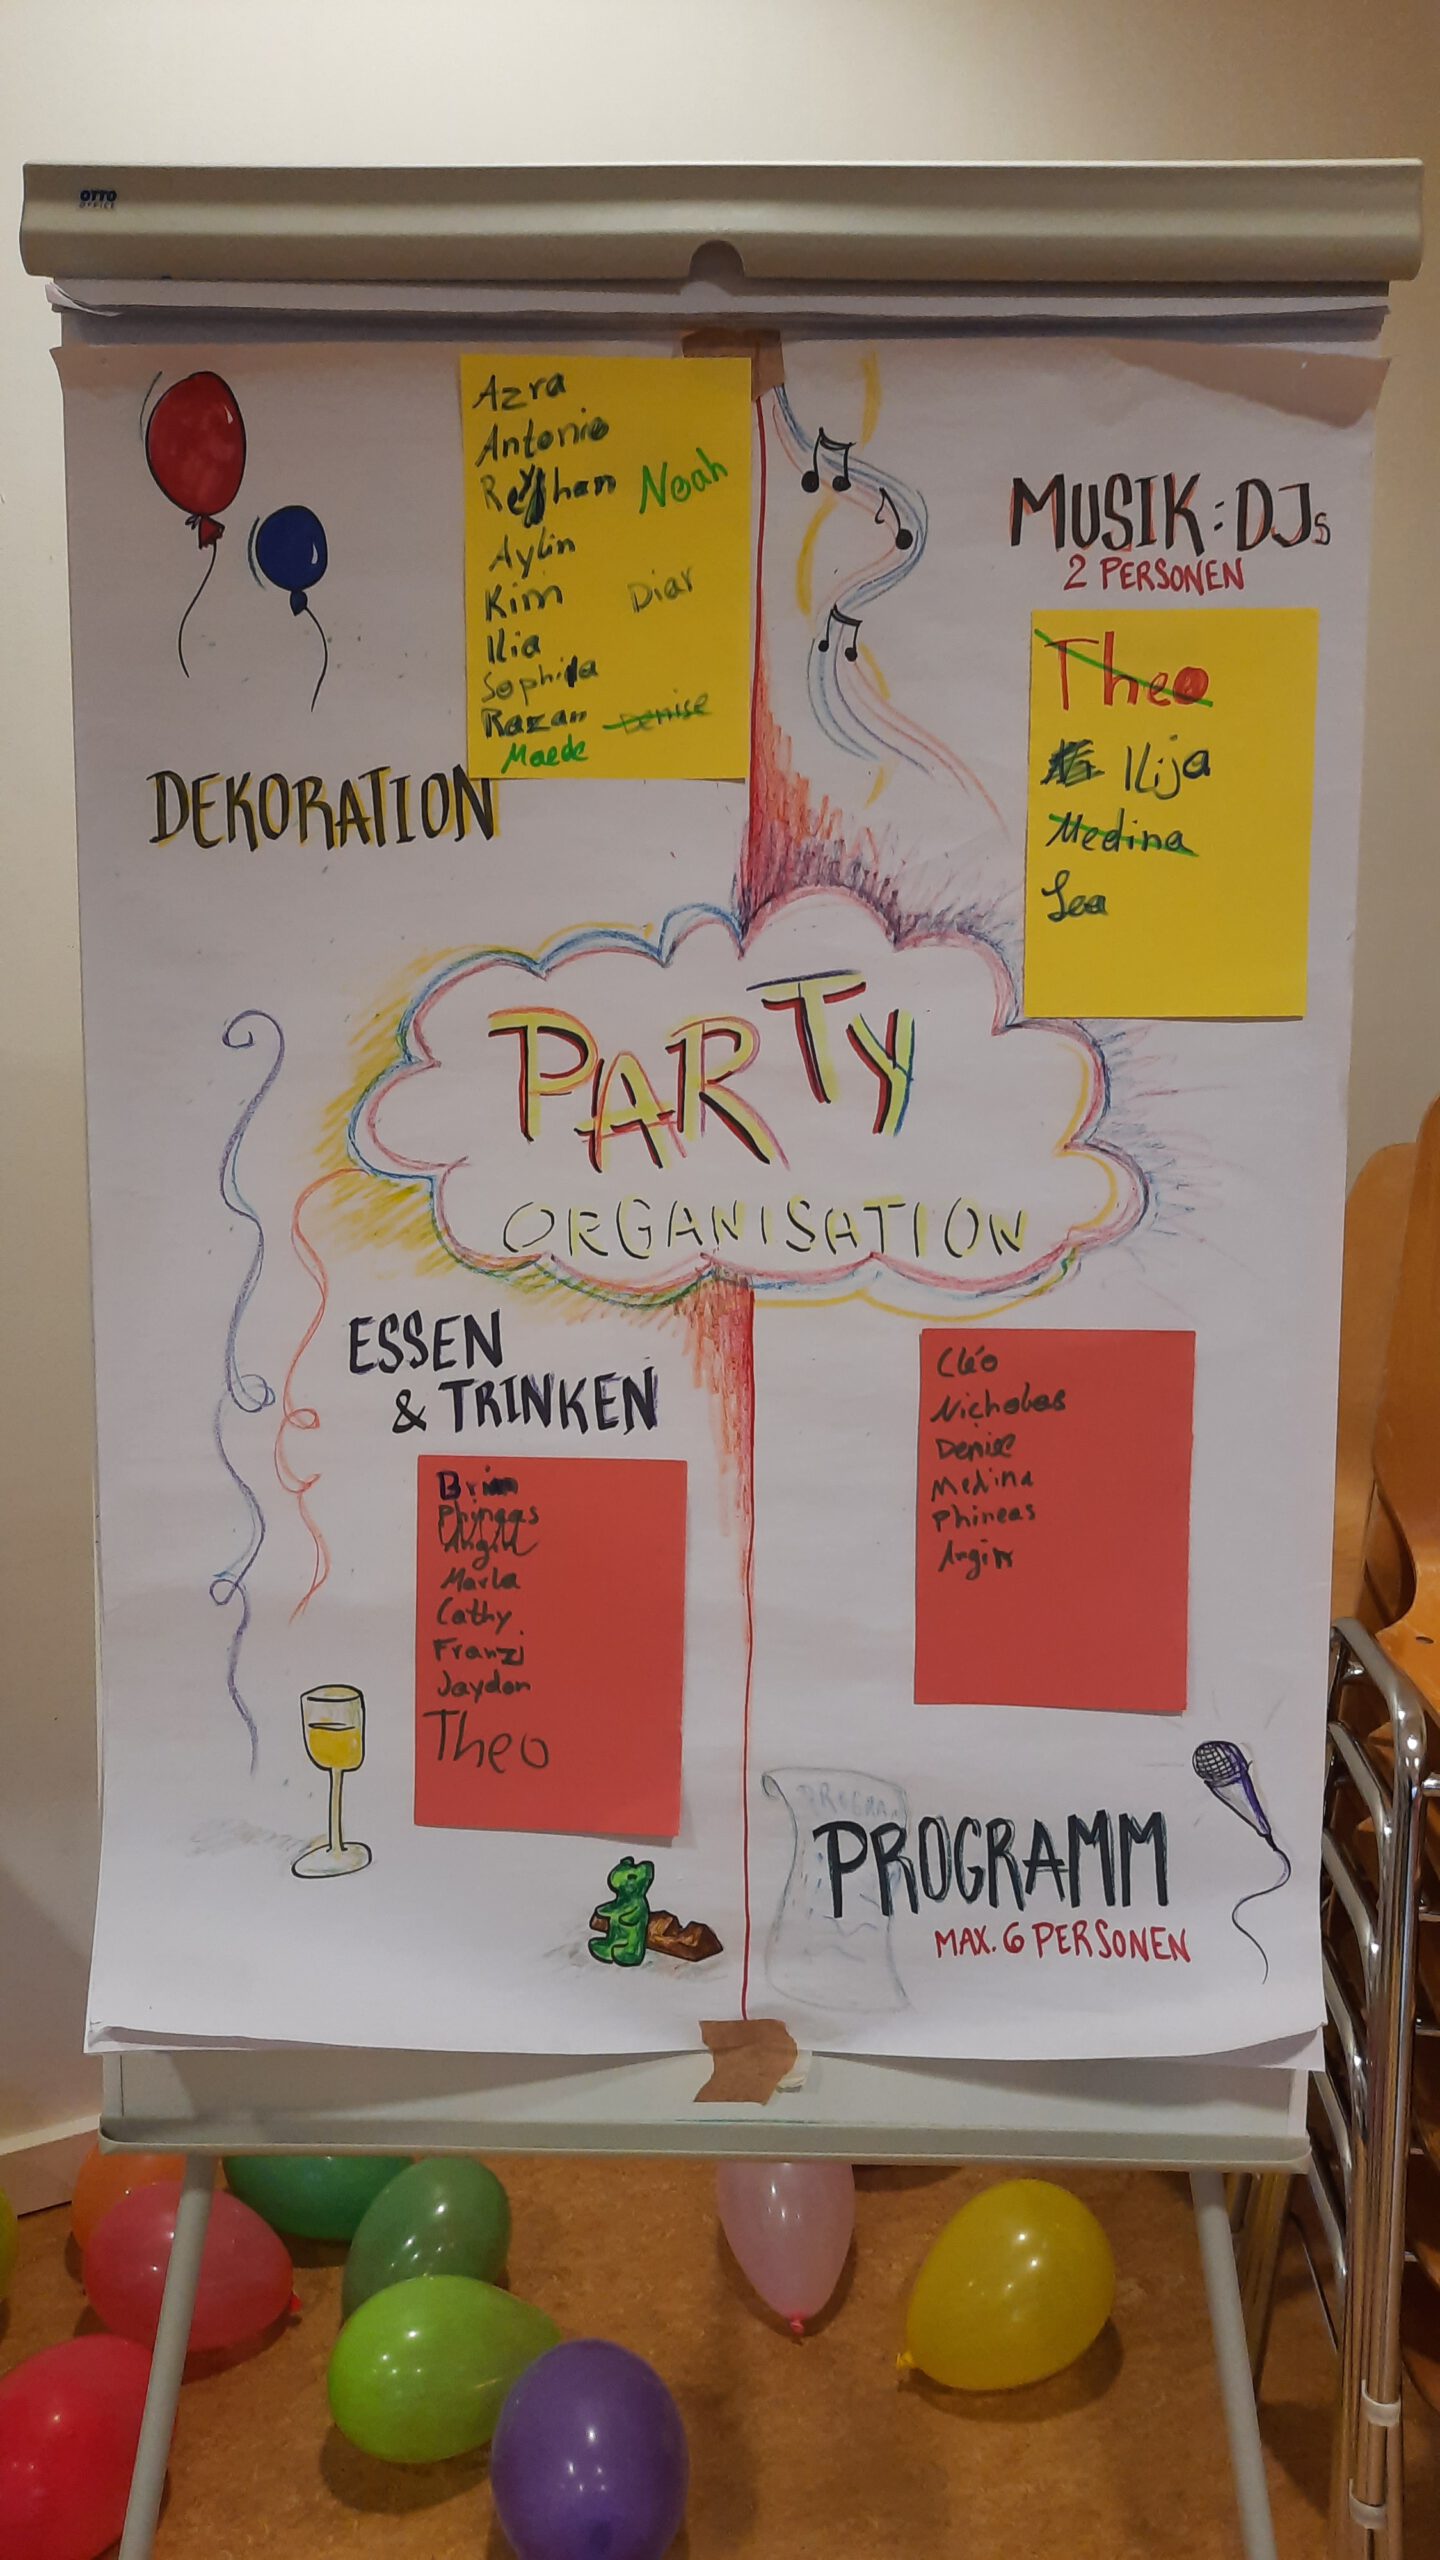 OTTO
OFFICE
Azra
Antonio
Reyhan Noah
Aylin
Kim Diar
Ilia
Sophia
Razan Denise
Maede
DEKORATION
MUSIK: DJs
2 PERSONEN
Theo
Ilija
Medina
Lea
PARTY
ORGANISATION
ESSEN
& TRINKEN
Brian
Phineas
Angin
Marla
Cathy
Franzi
Jaydon
Theo
Cléo
Nicholas
Denise
Medina
Phineas
Angin
PROGRAMM
MAX. 6 PERSONEN